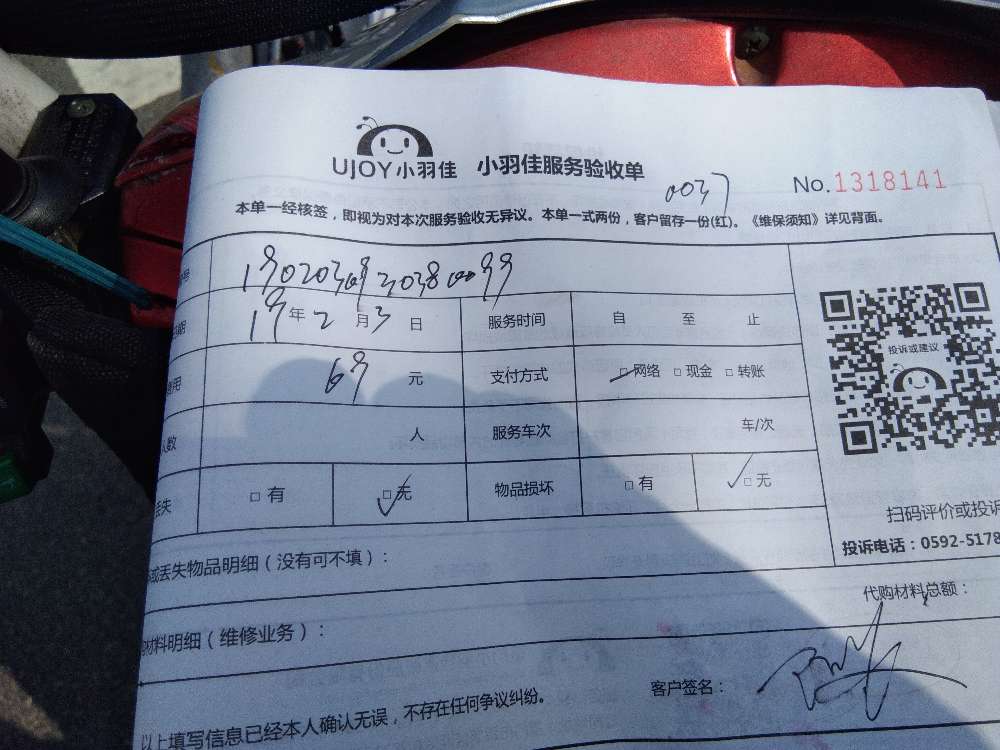 UJOY小羽佳 小羽佳服务验收单
0037 No.1318141
本单一经核签，即视为对本次服务验收无异议。本单一式两份，客户留存一份(红)。《维保须知》详见背面。
号
19年2月3日 服务时间 自 至 止
用 69 元 支付方式 □网络 □现金 □转账
人数 人 服务车次 车/次
丢失 □有 □无 物品损坏 □有 □无
投诉或建议
扫码评价或投诉
投诉电话：0592-5178
丢失物品明细（没有可不填）：
代购材料总额：
材料明细（维修业务）：
客户签名：
以上填写信息已经本人确认无误，不存在任何争议纠纷。